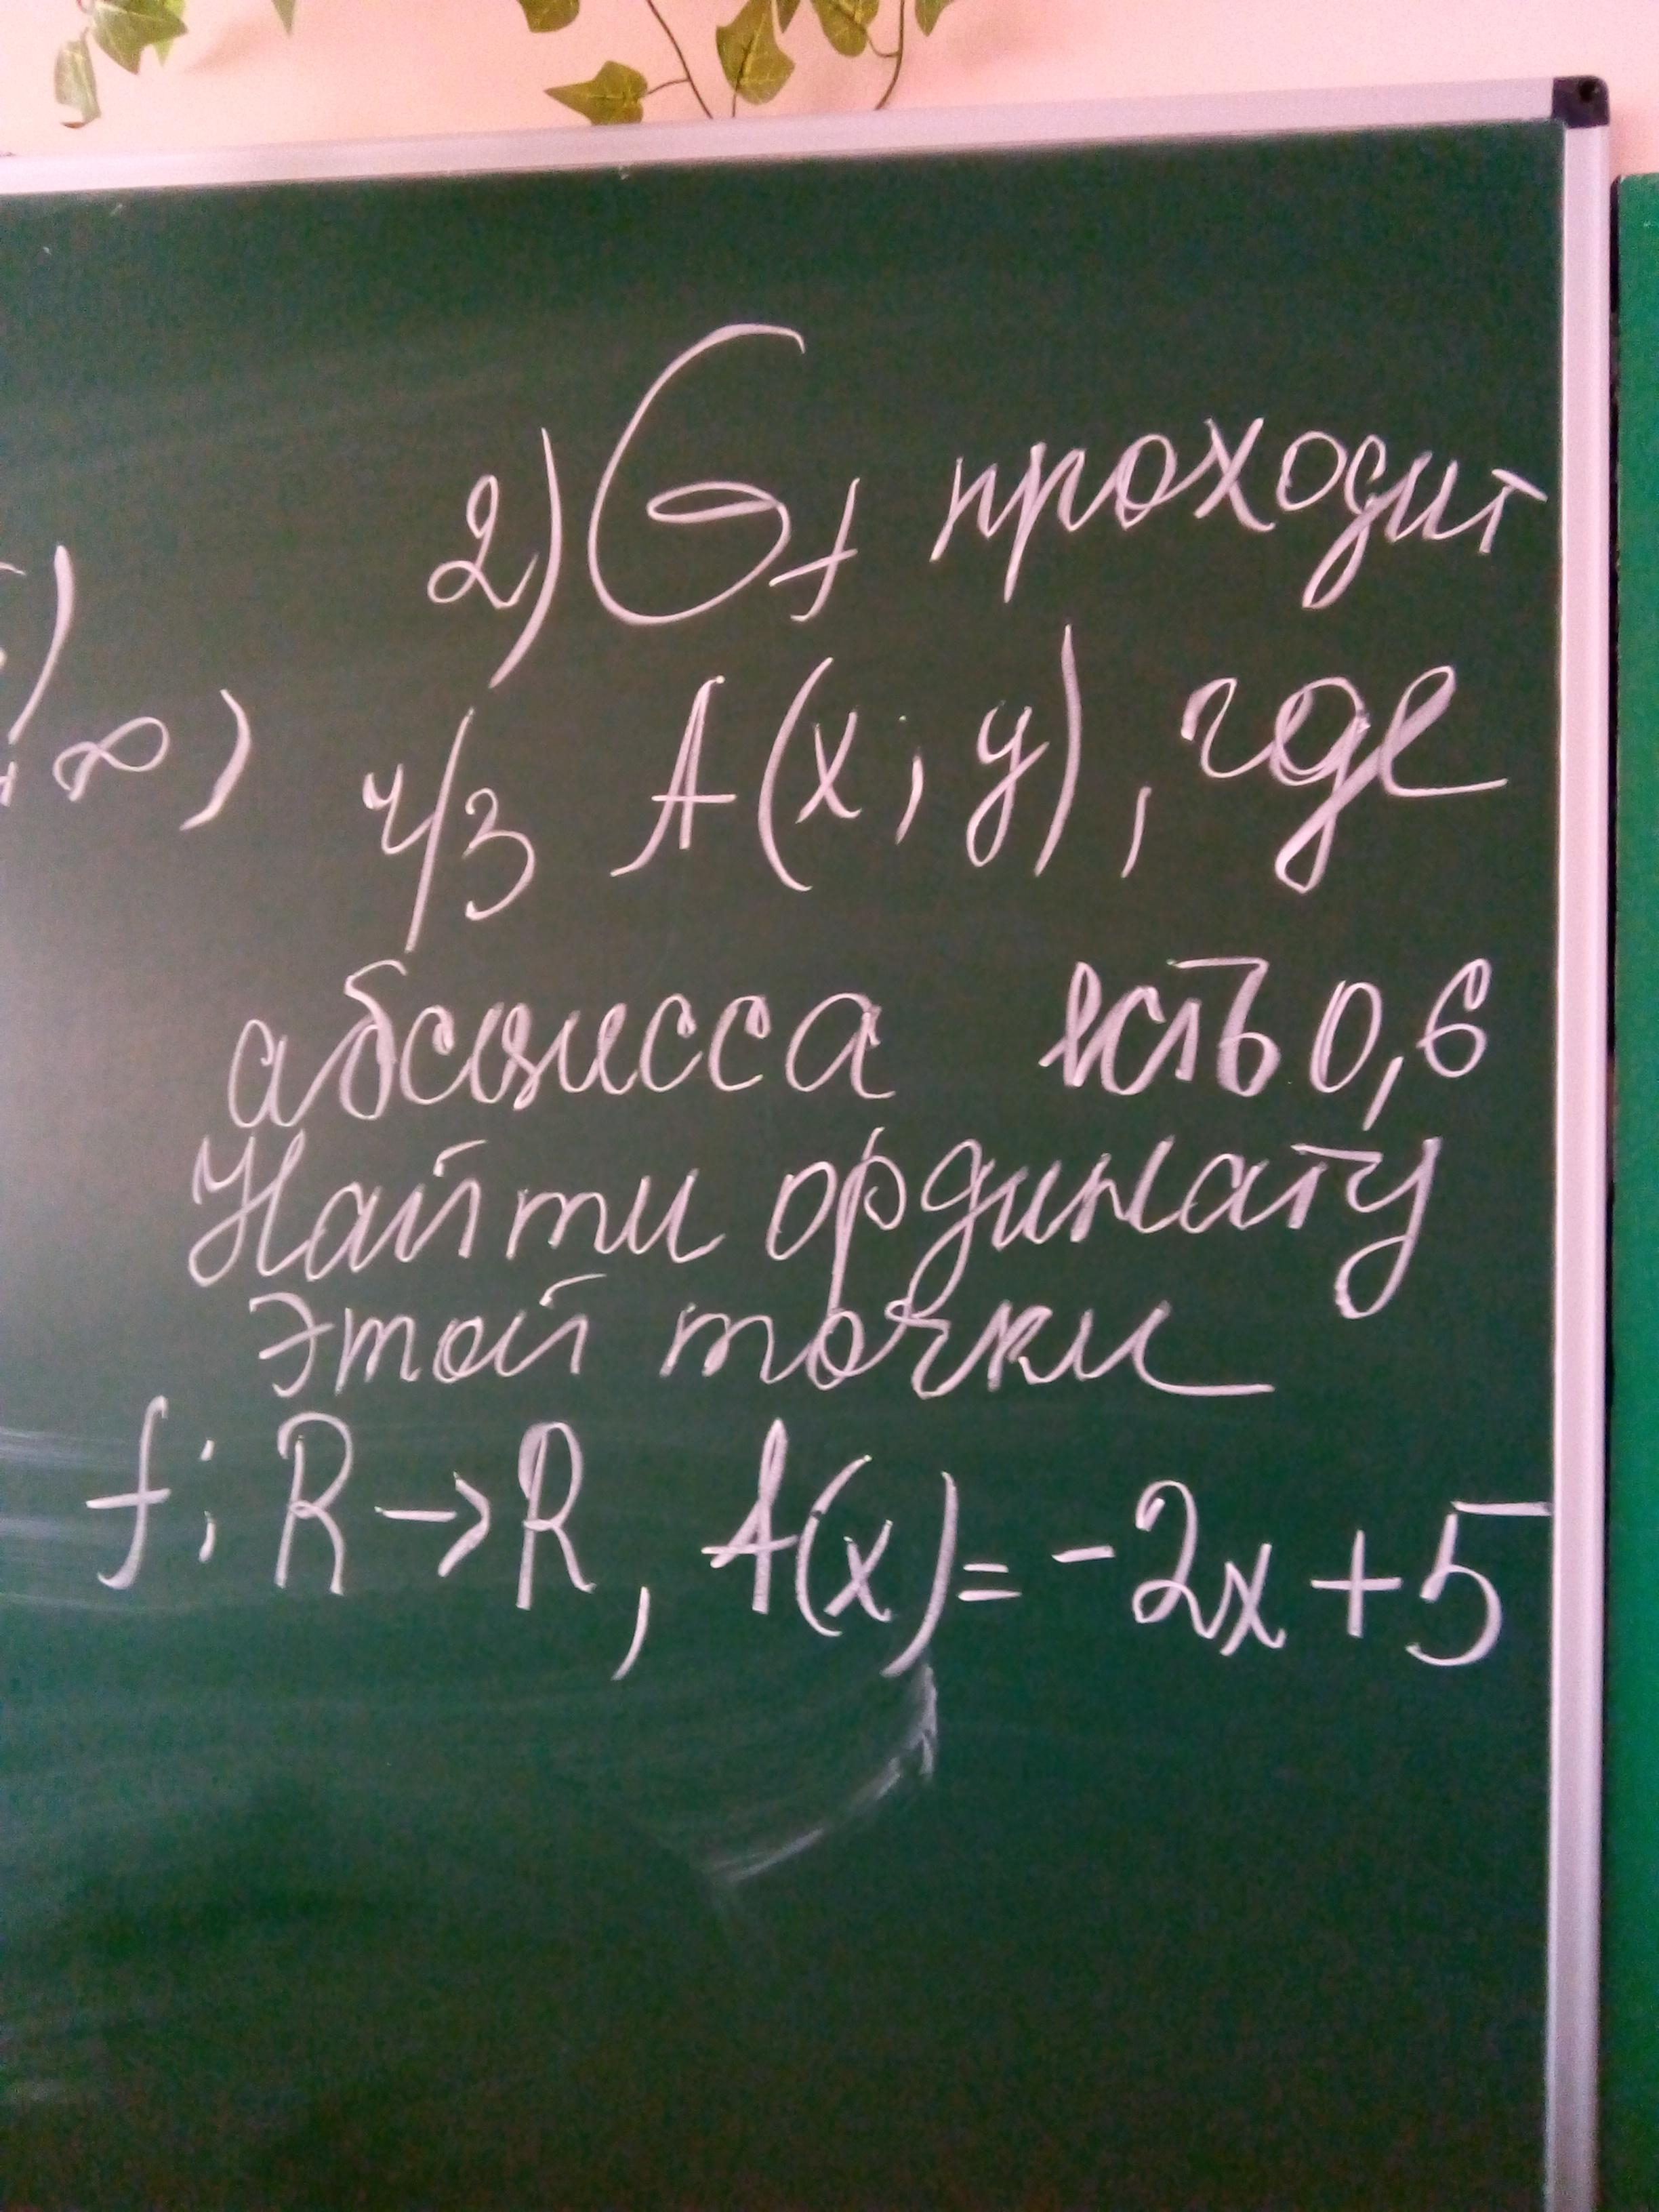 2) Gf проходит
; ∞) ч/з A(x; y), где
абсцисса есть 0,6
Найти ординату
этой точки
f: R→R, f(x)= -2x+5